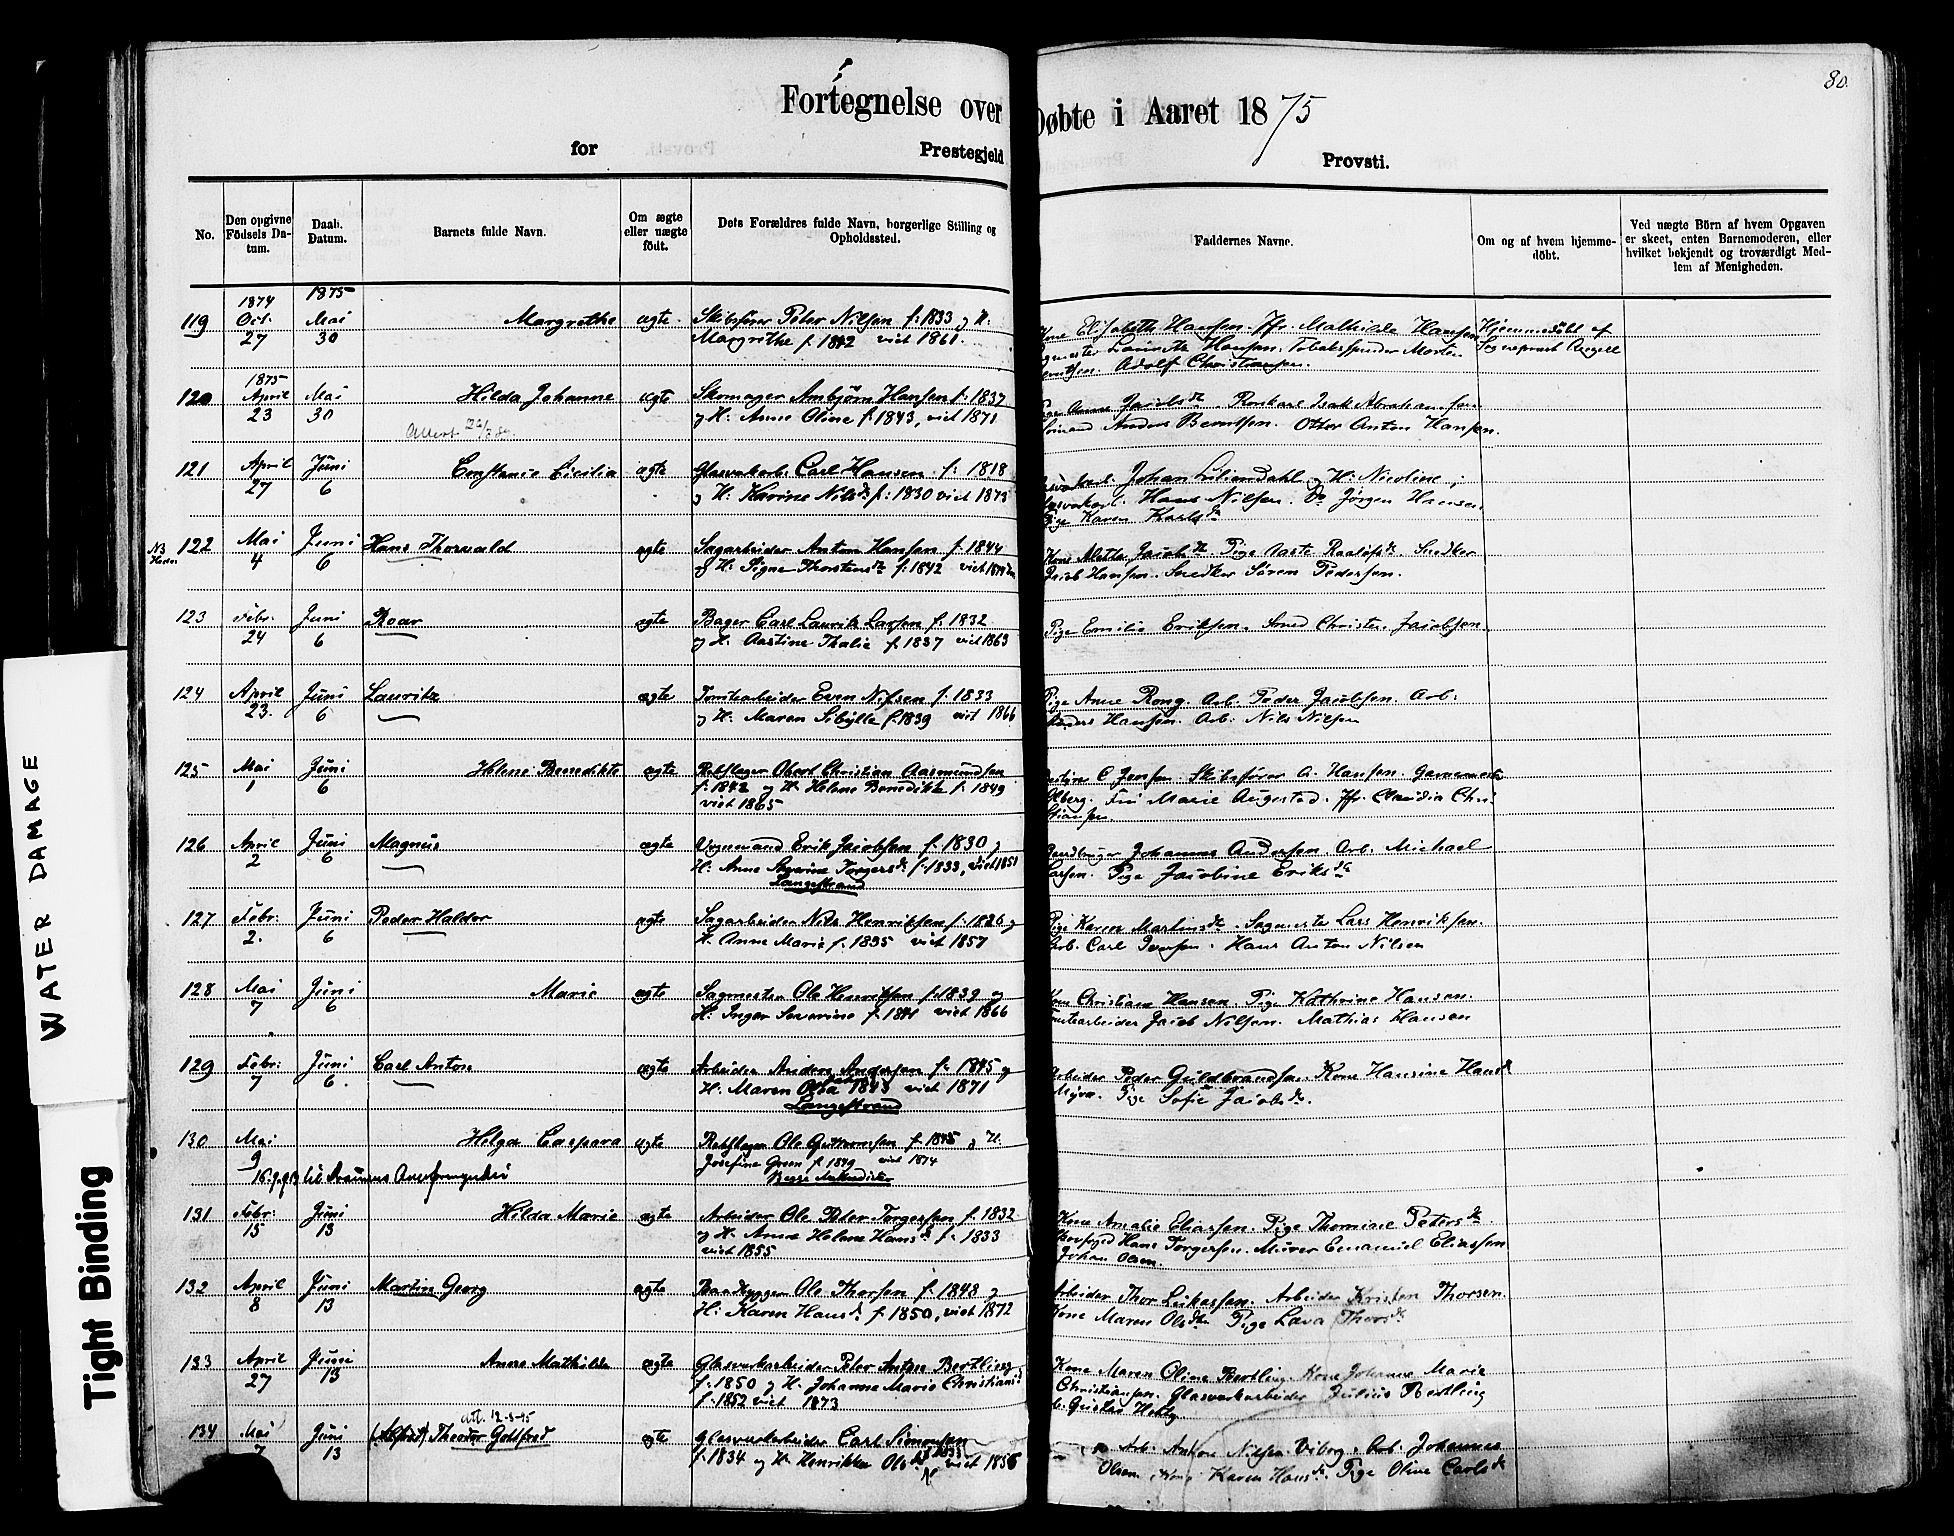 80.
Fortegnelse over Døbte i Aaret 1875
for Prestegjeld Provsti.
No. Den opgivne Födsels Datum. Daab. Datum. Barnets fulde Navn. Om ægte eller uægte födt. Dets Forældres fulde Navn, borgerlige Stilling og Opholdssted. Faddernes Navne. Om og af hvem hjemmedöbt. Ved uægte Börn af hvem Opgaven er skeet, enten Barnemoderen, eller hvilket bekjendt og troværdigt Medlem af Menigheden.
1874 1875
119 Oct. 27 Mai 30 Margrethe ægte Skibsfører Peter Nilsen f. 1833 og H.
Margrethe f. 1842 viet 1861.
Kone Elisabeth Hansen. Jfr. Mathilde Hansen Hjemmedøbt af
Lauritz Hansen. Tobaksspinder Morten Sogneprest
Adolf Christiansen.
1875
120 April 23 Mai 30 Hilda Johanne ægte Skomager Ambjørn Hansen f. 1837
og H. Anne Oline f. 1843, viet 1871
Anne Jacobsdt. Isak Abrahamsen
Anders Berntsen. Anton Hansen.
Attest
121 April 27 Juni 6 Constance Cicilia ægte Glasværkarb. Carl Hansen f. 1818
og H. Karine Nilsdt. f. 1830 viet 1873
Johan Liliendahl og H. Nicoline;
Hans Nilsen. Do Jørgen Hansen.
Pige Karen Karlsdt.
NB
122 Mai 4 Juni 6 Hans Thorvald ægte Sagarbeider Anton Hansen f. 1844
og H. Signe Thorstensdt. f. 1842 viet
Kone Alethe Jacobsdt. Pige Snedker
Jacob Hansen. Snedker Søren Pedersen.
123 Febr. 24 Juni 6 Roar ægte Bager Carl Lauritz Larsen f. 1832
og H. Aastine Thalie f. 1837 viet 1863
Pige Emilie Eriksen. Smed Christen Jacobsen
124 April 23. Juni 6 Lauritz ægte Tomtearbeider Even Nilsen f. 1833
og H. Maren Sibylle f. 1839 viet 1866
Pige Anne Rong. Arb. Peder Jacobsen. Arb.
Anders Hansen. Arb. Nils Nilsen
125 Mai 1 Juni 6 Helene Benedikte ægte Rebslager Obert Christian Aasmundsen
f. 1842 og H. Helene Benedikte f. 1849
viet 1865
C Jensen. Skibsfører A. Hansen.
Marie Augestad. Jfr. Claudia Chri-
stiansen
126 April 2 Juni 6 Magnus ægte Vognmand Erik Jacobsen f. 1830 og
H. Anne Torgersdt. f. 1833, viet 1851
Langestrand
Johannes Andersen Arb. Michael
Larsen. Pige Jacobine Eriksdt.
127 Febr. 2. Juni 6 Peder Halder ægte Sagarbeider Nils Henriksen f. 1826 og
H. Anne Marie f. 1835 viet 1857
Pige Karen Martinsdt. Sagmester Lars Henriksen.
Arb. Carl Iversen. Hans Anton Nilsen
128 Mai 7 Juni 6 Marie ægte Sagmester Ole Henriksen f. 1839 og
H. Inger Severine f. 1841 viet 1866
Kone Christiane Hansen. Pige Kathrine Hansen.
Tomtearbeider Jacob Nilsen. Mathias Hansen
129 Febr. 7 Juni 6. Carl Anton ægte Arbeider Anders Andersen f. 1845 og
H. Maren 1843 viet 1871
Langestrand
Arbeider Peder Guldbrandsen. Kone Hansine Hansdt.
Myra. Pige Sofie Jacobsdt.
130 Mai 9 Helga Caspara ægte Rebslager Ole Guttormsen f. 1845 og H.
Josefine Green f. 1849 viet 1874
131 Febr. 15 Juni 13 Hilda Marie ægte Arbeider Ole Peter Torgersen f. 1832
og H. Anne Helene Hansdt. f. 1833
viet 1855
Kone Amalie Eliassen. Pige Thomine Petersdt.
Hans Torgersen. Murer Emanuel Eliassen
Johan Olsen.
132 April 8 Juni 13 Martin Georg ægte Baadbygger Ole Thorsen f. 1848 og
H. Karen Hansdt. f. 1850, viet 1872
Arbeider Thor Lukassen. Arbeider Kristen Thorsen.
Kone Maren Olsdtr Pige Lava Thorsdt.
133 April 27 Juni 13 Anne Mathilde ægte Glasværkarbeider Peter Anton Bertling
f. 1850 og H. Johanne Marie Christiansdt.
f. 1852 viet 1873
Kone Maren Oline Bertling. Kone Johanne Marie
Christiansen. Glasværkarbeider Julius Bertling
Gustav
att. 12-3-45
134 Mai 7 Juni 13 (Alfred) Theodor Gottfred ægte Glasværkarbeider Carl Simonsen
f. 1834 og H. Henrikke Olsdt. viet 1856
Arb. Anton Nilsen Viborg. Arb. Johannes
Olsen. Karen Hansdt. Pige Oline Carlsdt.
WATER DAMAGE
Tight Binding